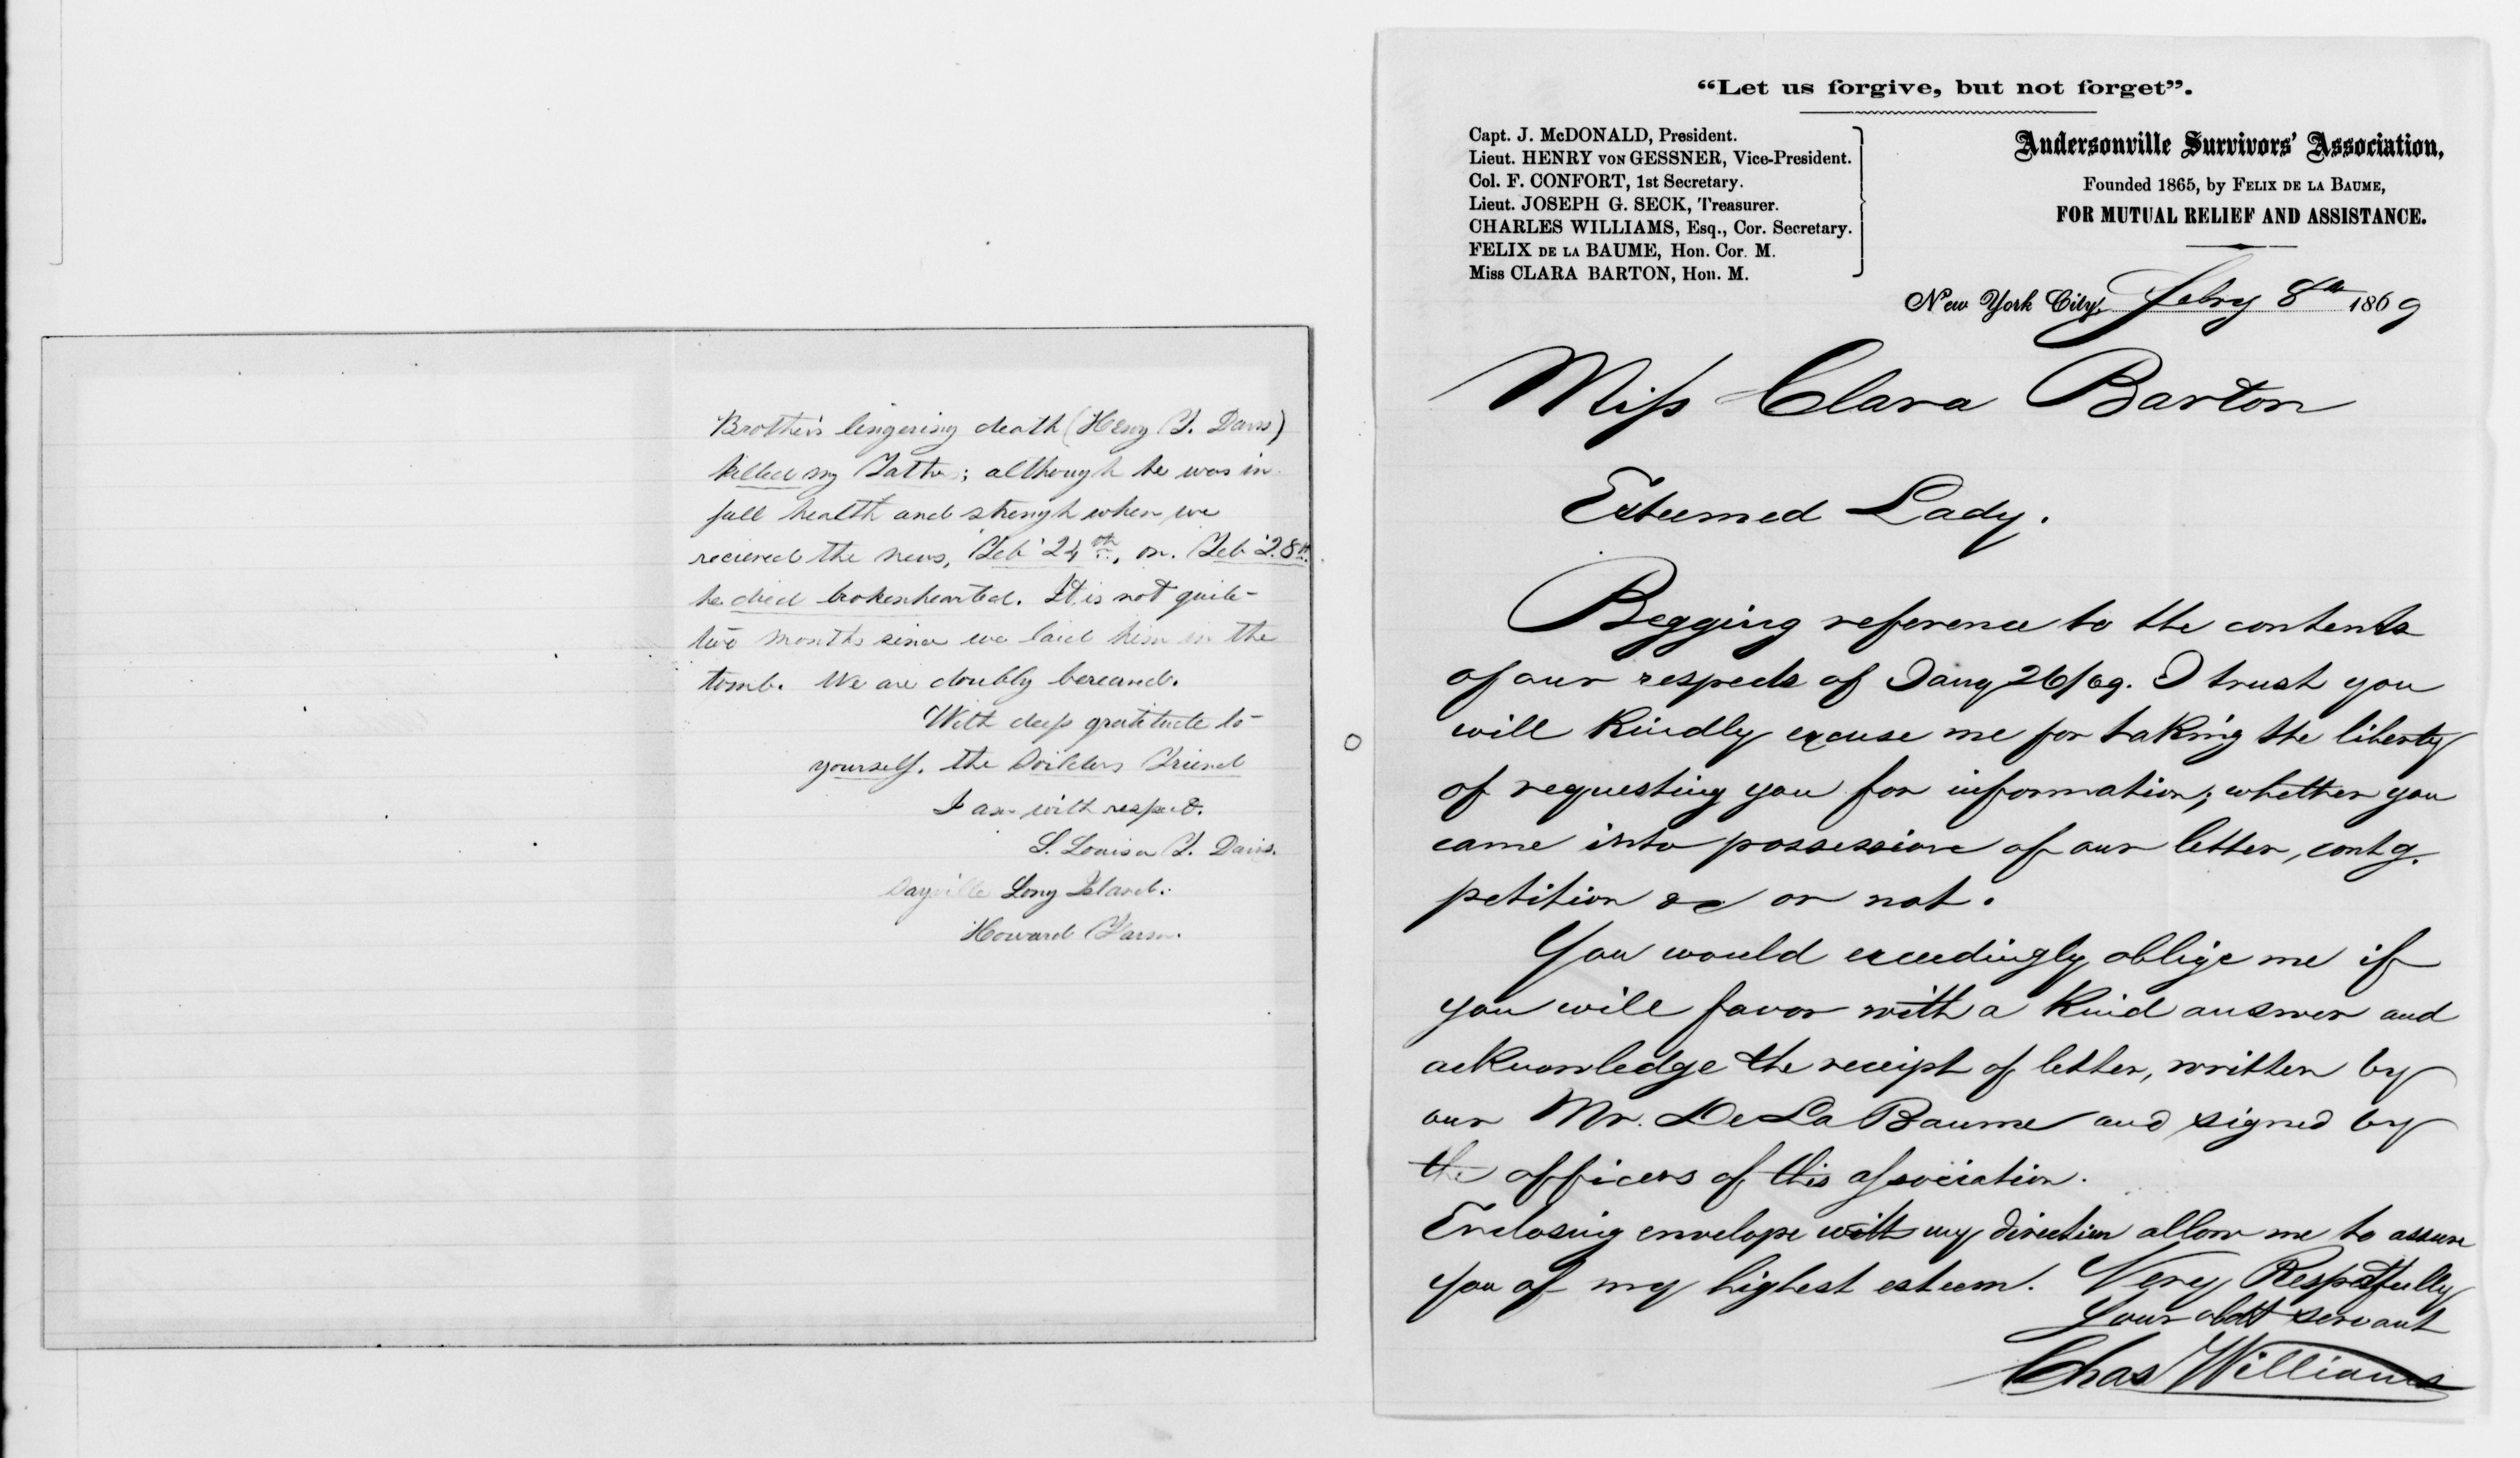 Brother's lingering death (Henry T. Davis)
killed my Father; although he was in
full health and strengh when we
recieved the news, Feb' 24th, on. Feb' 28th.
he died brokenhearted. It is not quite
two months since we laid him in the
tomb. We are doubly bereaved.
With deep gratitude to
yourself, the Soilders Friend
I am with respect.
S. Louisa T. Davis.
Dayville Long Island.
Howard
"Let us forgive, but not forget".
Capt. J. McDONALD, President.
Lieut. HENRY VON GESSNER, Vice-President.
Col. F. CONFORT, 1st Secretary.
Lieut. JOSEPH G. SECK, Treasurer.
CHARLES WILLIAMS, Esq., Cor. Secretary.
FELIX DE LA BAUME, Hon. Cor. M.
Miss CLARA BARTON, Hon. M.
Andersonville Survivors' Association,
Founded 1865, by FELIX DE LA BAUME,
FOR MUTUAL RELIEF AND ASSISTANCE.
New York City, Febry 8th 1869
Miss Clara Barton
Esteemed Lady.
Begging reference to the contents
of our respects of Jany 26/69. I trust you
will kindly excuse me for taking the liberty
of requesting you for information; whether you
came into possession of our letter, contg.
petition &c or not.
You would exceedingly oblige me if
you will favor with a kind answer and
acknowledge the receipt of letter, written by
our Mr. De La Baume and signed by
the officers of this association.
Enclosing envelope with my direction allow me to assure
you of my highest esteem. Very Respectfully
Your obdt servant
Chas Williams